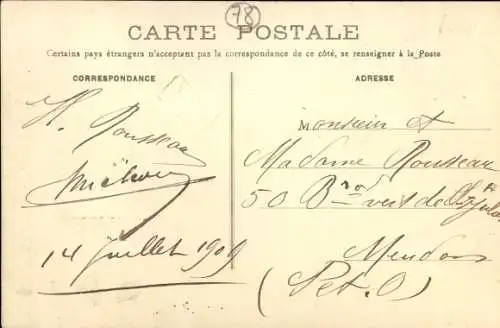 78
CARTE POSTALE
Certains pays étrangers n'acceptent pas la correspondance de ce côté, se renseigner à la Poste
CORRESPONDANCE
ADRESSE
H. Rousseau
14 Juillet 1909
Monsieur et
Madame Rousseau
50 Bard
Meudon
(Set. O)